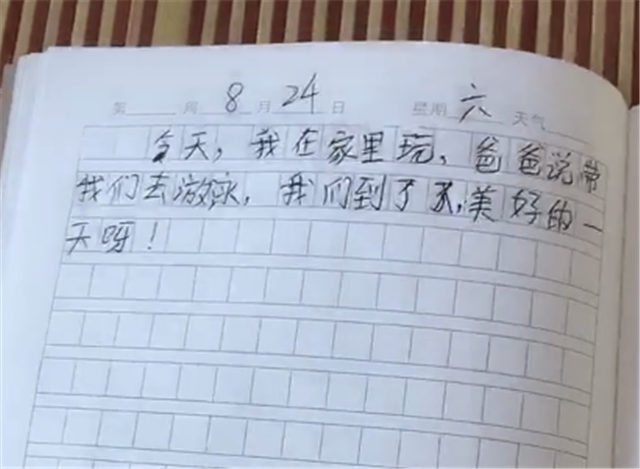 第 周 8月24日 星期六 天气
今天，我在家里玩，爸爸说带
我们去游泳，我们到了，美好的一
天呀！